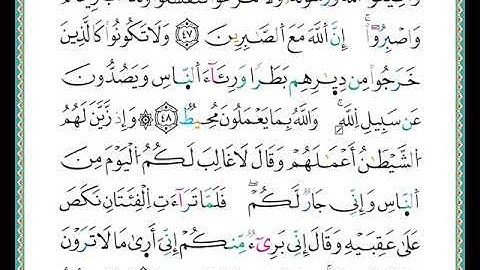 وَٱصْبِرُوٓا۟ۚ إِنَّ ٱللَّهَ مَعَ ٱلصَّٰبِرِينَ ٤٧ وَلَا تَكُونُوا۟ كَٱلَّذِينَ
خَرَجُوا۟ مِن دِيَٰرِهِم بَطَرًا وَرِئَآءَ ٱلنَّاسِ وَيَصُدُّونَ
عَن سَبِيلِ ٱللَّهِۚ وَٱللَّهُ بِمَا يَعْمَلُونَ مُحِيطٌ ٤٨ ۞ وَإِذْ زَيَّنَ لَهُمُ
ٱلشَّيْطَٰنُ أَعْمَٰلَهُمْ وَقَالَ لَا غَالِبَ لَكُمُ ٱلْيَوْمَ مِنَ
ٱلنَّاسِ وَإِنِّى جَارٌ لَّكُمْۖ فَلَمَّا تَرَآءَتِ ٱلْفِئَتَانِ نَكَصَ
عَلَىٰ عَقِبَيْهِ وَقَالَ إِنِّى بَرِىٓءٌ مِّنكُمْ إِنِّىٓ أَرَىٰ مَا لَا تَرَوْنَ